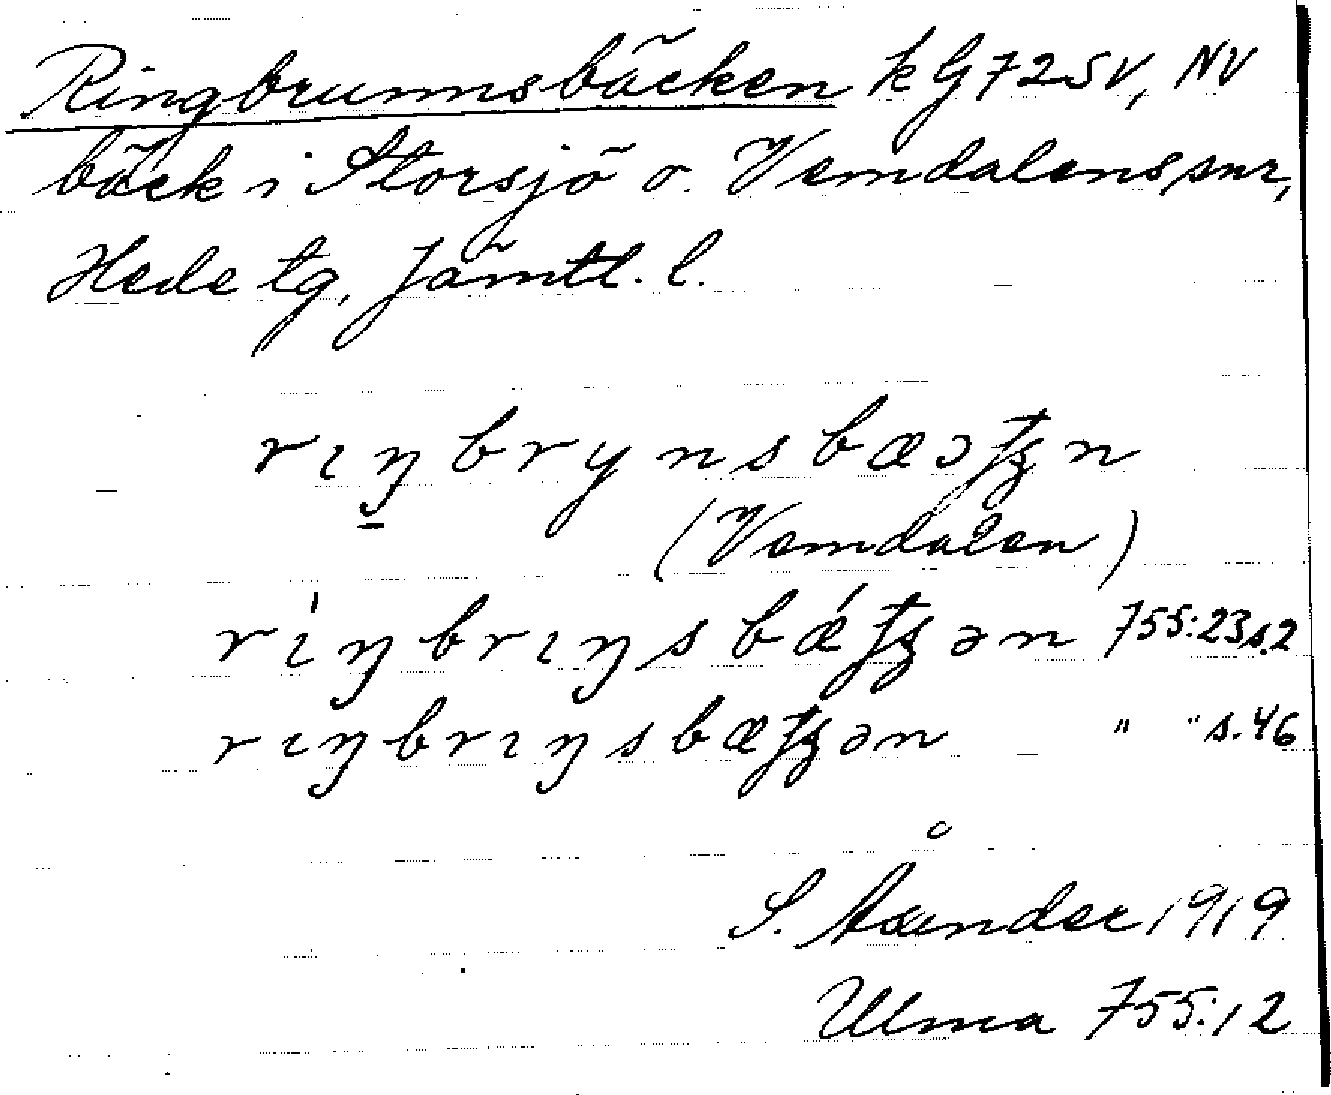 Ringbrunnsbäcken kG72SV, NV
bäck i Storsjö o. Vemdalens snr,
Hede tg, Jämtl. l.
rıŋbrynsbæəʈʂn
(Vemdalen)
rıŋbrıŋsbǽʈʂən 755:23 s.2
rıŋbrıŋsbæʈʂən " " s.46
S. 1919
Ulma 755:12